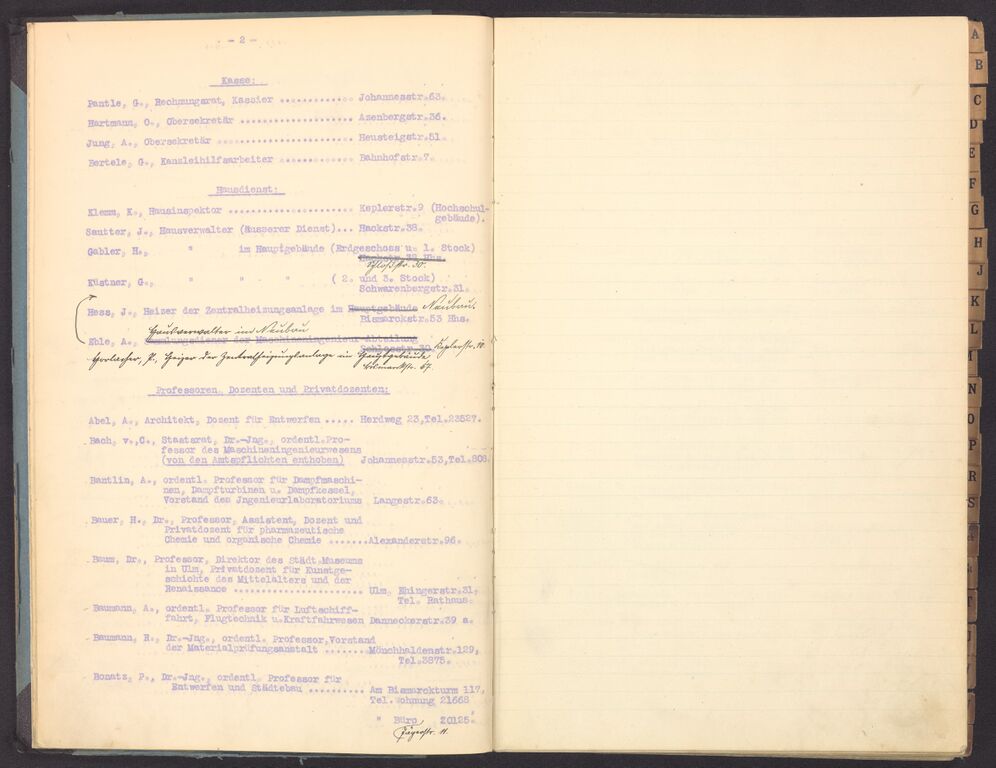 - 2 -
Kasse:
Pantle, G., Rechnungsrat, Kassier ............ Johannesstr.63.
Hartmann, O., Obersekretär ................... Azenbergstr.36.
Jung, A., Obersekretär ....................... Heusteigstr.51.
Bertele, G., Kanzleihilfsarbeiter ............ Bahnhofstr.7.
Hausdienst:
Klemm, K., Hausinspektor ..................... Keplerstr.9 (Hochschul-
gebäude).
Sautter, J., Hausverwalter (Äusserer Dienst)... Hackstr.38.
Gabler, H., " im Hauptgebäude (Erdgeschoss u. 1. Stock)
Hackstr.38 Hhs.
Schloßstr. 30.
Küstner, G., " " " ( 2. und 3. Stock)
Schwarenbergstr.31.
Hess, J., Heizer der Zentralheizungsanlage im Hauptgebäude Neubau.
Bismarckstr.53 Hhs.
Hausverwalter im Neubau
Eble, A., Sammlungsdiener der Maschineningenieur Abteilung
Schlosstr.30 Keplerstr. 10.
Gerlacher, P., Heizer der Zentralheizungsanlage im Hauptgebäude
Bismarckstr. 67.
Professoren, Dozenten und Privatdozenten:
Abel, A., Architekt, Dozent für Entwerfen ..... Herdweg 23,Tel.23527.
Bach, v.,C., Staatsrat, Dr.-Jng., ordentl.Pro-
fessor des Maschineningenieurwesens
(von den Amtspflichten enthoben) Johannesstr.53,Tel.808.
Bantlin, A., ordentl. Professor für Dampfmaschi-
nen, Dampfturbinen u. Dampfkessel,
Vorstand des Jngenieurlaboratoriums Langestr.63.
Bauer, H., Dr., Professor, Assistent, Dozent und
Privatdozent für pharmazeutische
Chemie und organische Chemie .......Alexanderstr.96.
Baum, Dr., Professor, Direktor des Städt.Museums
in Ulm, Privatdozent für Kunstge-
schichte des Mittelalters und der
Renaissance ...................... Ulm, Ehingerstr.31,
Tel. Rathaus.
Baumann, A., ordentl. Professor für Luftschiff-
fahrt, Flugtechnik u.Kraftfahrwesen Danneckerstr.39 a.
Baumann, R., Dr.-Jng., ordentl. Professor,Vorstand
der Materialprüfungsanstalt ....... Mönchhaldenstr.129,
Tel.3875.
Bonatz, P., Dr.-Jng., ordentl. Professor für
Entwerfen und Städtebau .......... Am Bismarckturm 117,
Tel.Wohnung 21668
" Büro 20125.
Jägerstr. 11.
A
B
C
D
E
F
G
H
J
K
L
M
N
O
P
R
S
St
T